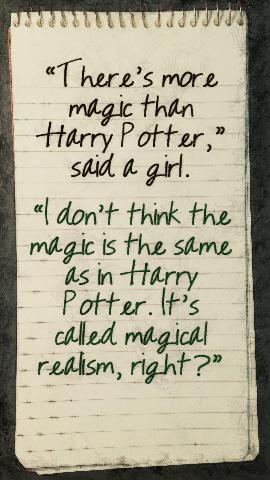 “There’s more
magic than
Harry Potter,”
said a girl.
“I don’t think the
magic is the same
as in Harry
Potter. It’s
called magical
realism, right?”